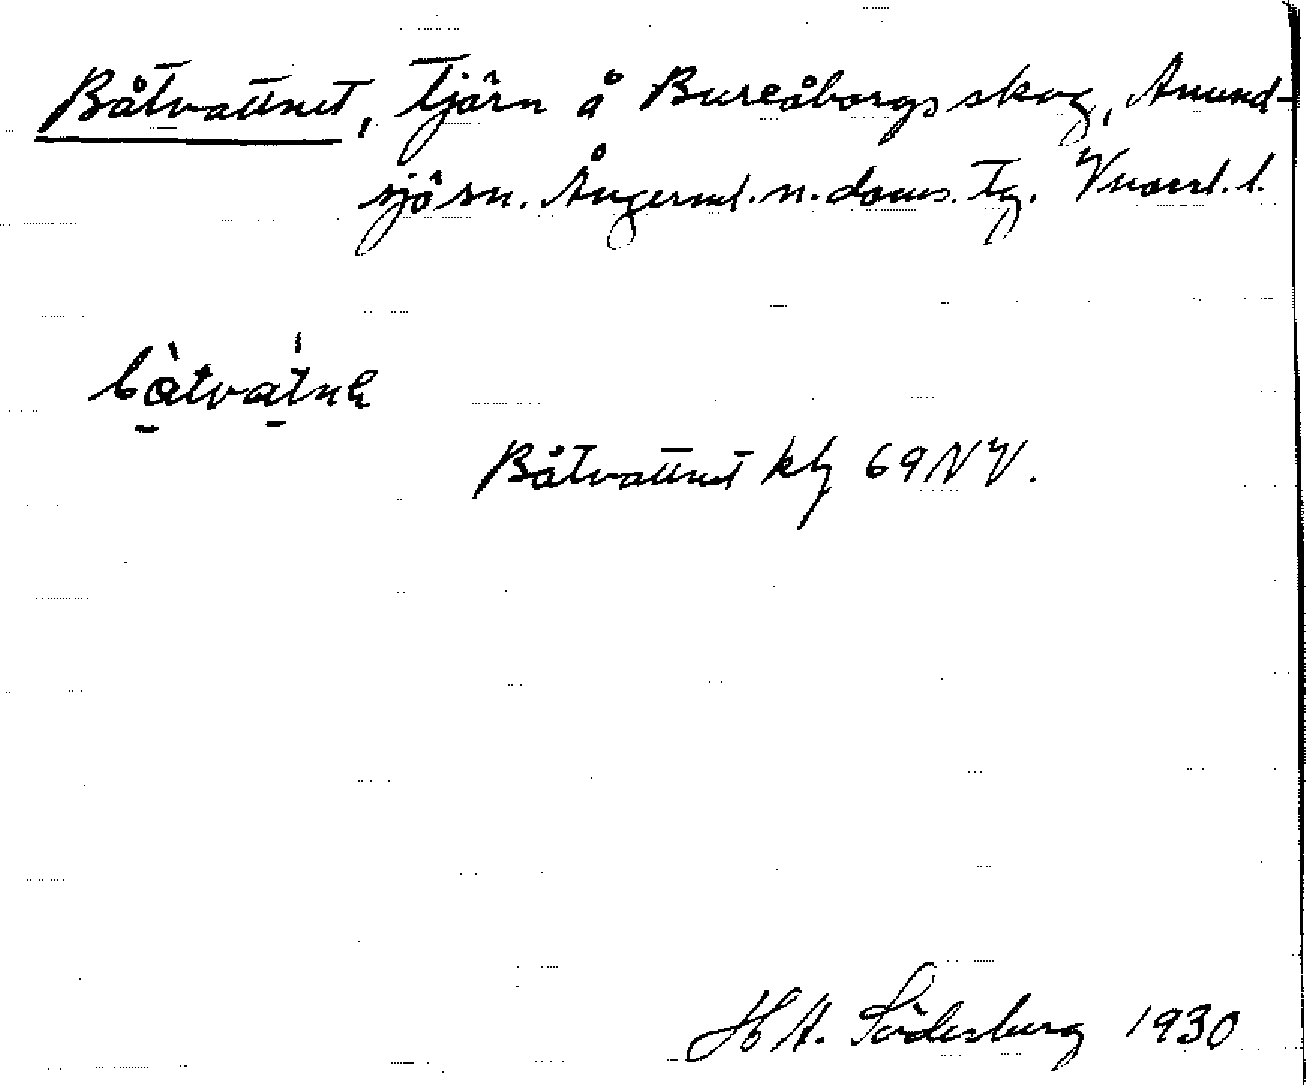 Båtvattnet, Tjärn å Bureåborgs skog, Anund-
sjö sn. Ångerml. n. doms. Tg. Vnorrl. l.
båtvatnə
Båtvattnet kbl 69 NV.
H A. Söderberg 1930